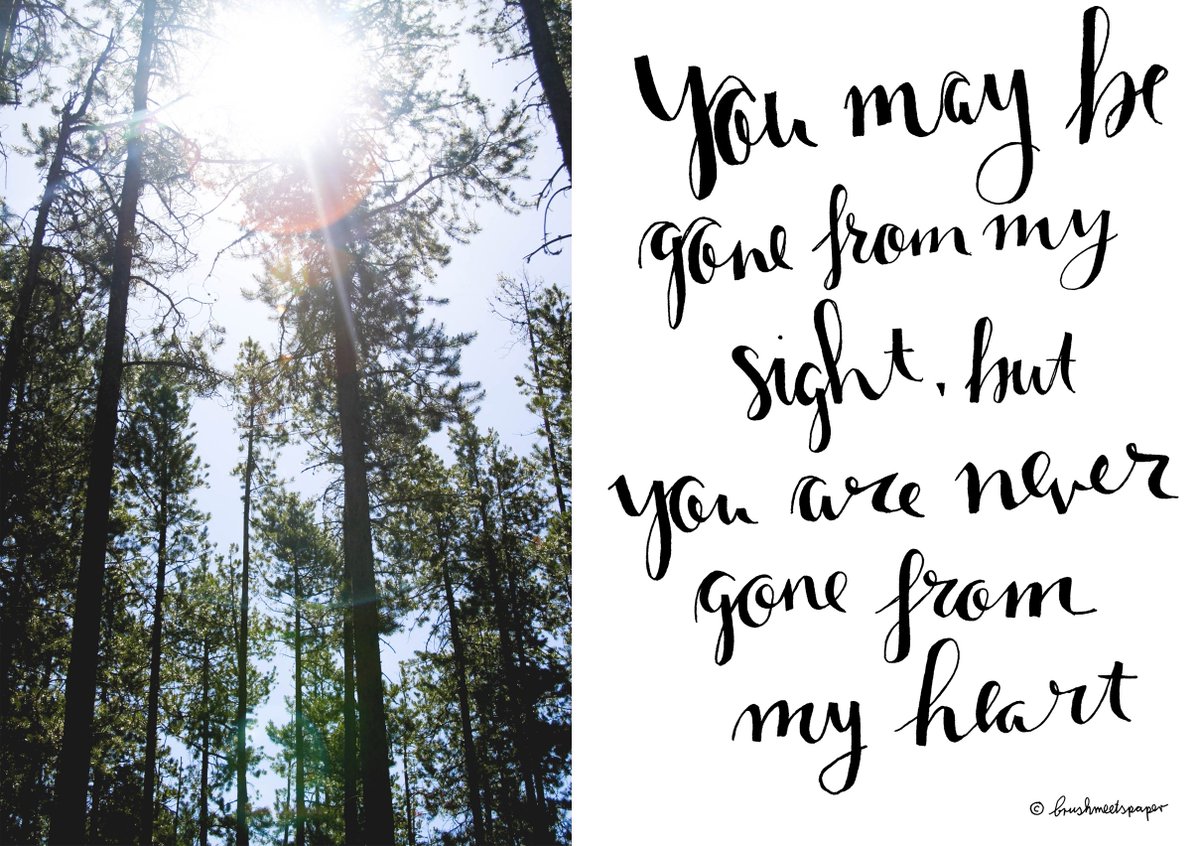 You may be
gone from my
sight, but
you are never
gone from
my heart
© brushmeetspaper